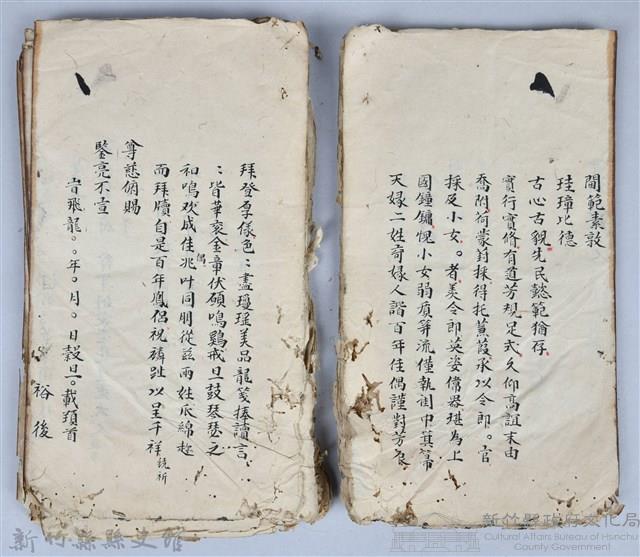 閫範素敦
珪璋比德
古心古貌先民懿範猶存
實行實脩有道芳規足式久仰高誼末由
喬附荷蒙葑採得托蒹葭承以令郎。官
採及小女。者羡令郎英姿偉器堪為上
國鐘鏞愧小女弱質笄流僅執閨中箕箒
天緣二姓奇緣人諧百年佳偶謹對芳辰
拜登厚儀色：盡瓊瑤美品龍箋捧讀言：
：皆華袞金章伏願鳴鷄戒旦鼓琴瑟之
和鳴欢成佳偶兆叶同朋從茲兩姓瓜綿趂
而拜牘自是百年鳳侶祝麟趾以呈千祥統祈
尊慈俯賜
鑒亮不宣
旹飛龍。。年。月。日穀旦。載頊首
裕後
新竹縣縣史館
新竹縣政府文化局
Cultural Affairs Bureau of Hsinchu
County Government